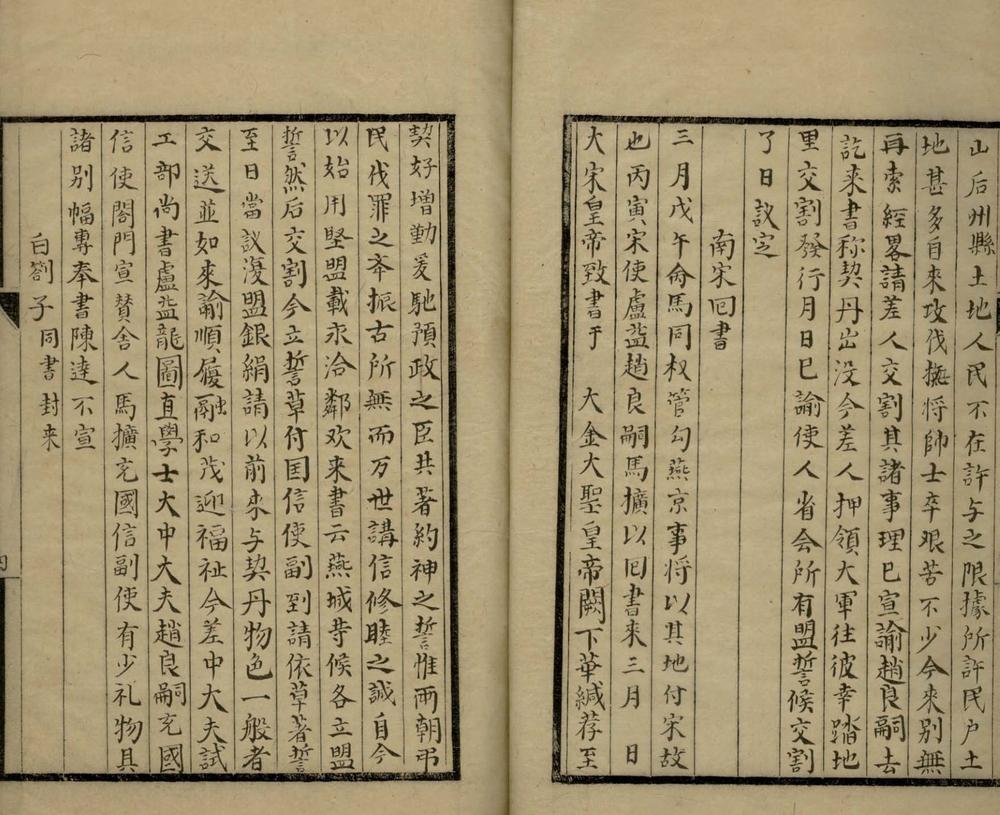 山后州縣土地人民不在許与之限據所許民户土
地甚多自来攻伐撫将帥士卒艰苦不少今来别無
再索經畧請差人交割其諸事理已宣諭趙良嗣去
訖来書称契丹出没今差人押領大軍往彼幸踏地
里交割發行月日已諭使人省会所有盟誓候交割
了日議定
南宋回書
三月戊午俞馬同权管勾燕京事将以其地付宋故
也丙寅宋使盧益趙良嗣馬擴以回書来三月 日
大宋皇帝致書于 大金大聖皇帝闕下華緘荐至
契好增勤爰馳預政之臣共著約神之誓惟兩朝弔
民伐罪之夲振古所無而万世講信修睦之誠自今
以始用堅盟載永洽鄰欢来書云燕城䒭候各立盟
誓然后交割今立誓草付囯信使副到請依草著誓
至日當議復盟銀絹請以前来与契丹物色一般者
交送並如来諭順履融和茂迎福祉今差中大夫試
工部尚書盧益龍圖直學士大中大夫趙良嗣充國
信使閤門宣賛舎人馬擴充國信副使有少礼物具
諸别幅專奉書陳逹不宣
白劄子同書封来